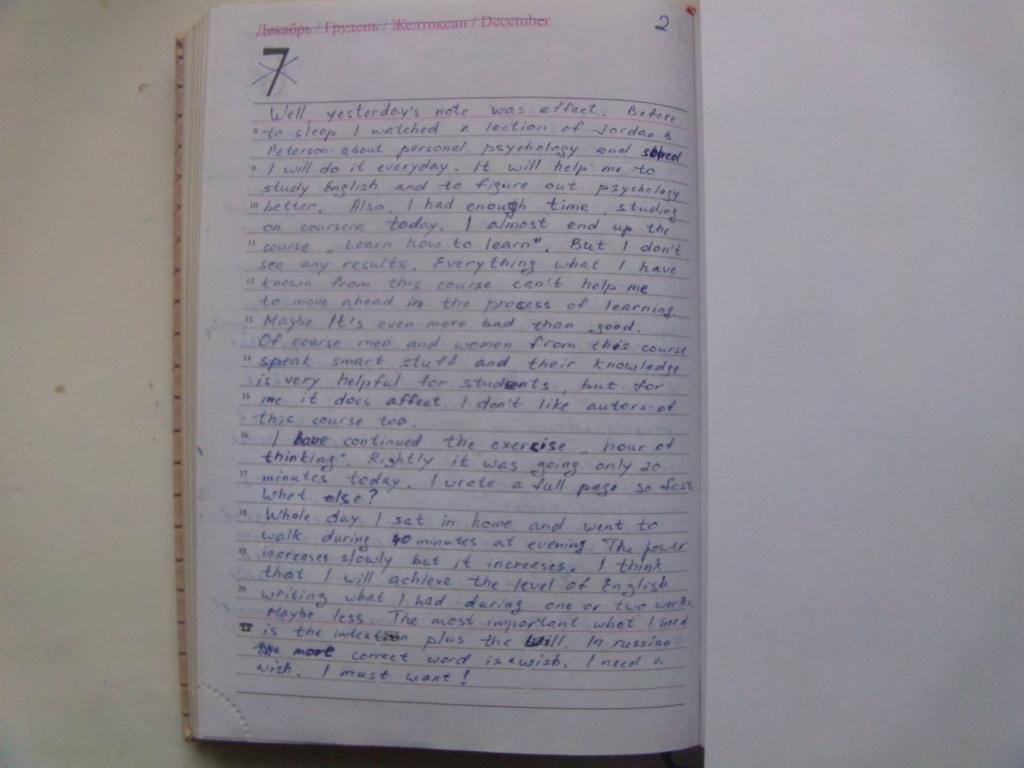 Декабрь / Грудень / Желтоксан / December
2
7
Well, yesterday's note was affect. Before
8 to sleep I watched a lection of Jordan B
Peterson about personal psychology and
9 I will do it everyday. It will help me to
study English and to figure out psychology
10 better. Also, I had enough time, studing
on coursera today. I almost end up the
11 course „Learn how to learn". But I don't
see any results. Everything what I have
12 known from this course can't help me
to move ahead in the process of learning.
13 Maybe It's even more bad than good.
Of course men and women from this course
14 speak smart stuff and their knowledge
is very helpful for students, but for
15 me it does affect. I don't like autors of
this course too.
16 I have continued the exercise „hour of
thinking". Rightly it was going only 20
17 minutes today. I wrote a full page so fast.
What else?
18 Whole day I sat in home and went to
walk during 40 minutes at evening. The power
19 increases slowly but it increases. I think
that I will achieve the level of English
20 writing what I had during one or two weeks.
Maybe less. The most important what I need
is the intention plus the will. In russian
the more correct word is a wish. I need a
wish. I must want!